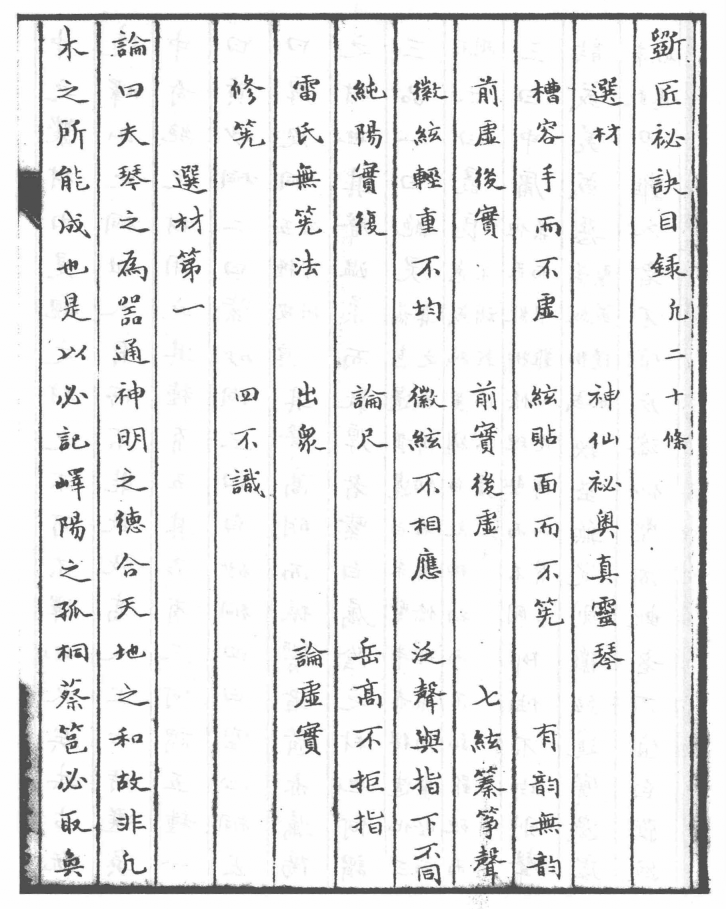 斵匠祕訣目録凢二十條
選材 神仙祕奥真靈琴
槽容手而不虛 絃貼面而不㧒 有韵無韵
前虛後實 前實後虛 七絃䉒筝聲
徽絃輕重不均 徽絃不相應 泛聲與指下不同
純陽實復 論尺 岳髙不拒指
雷氏無㧒法 出衆 論虛實
修㧒 四不識
選材第一
論曰夫琴之為噐通神明之德合天地之和故非凢
木之所能成也是以必記嶧陽之孤桐蔡邕必取爨